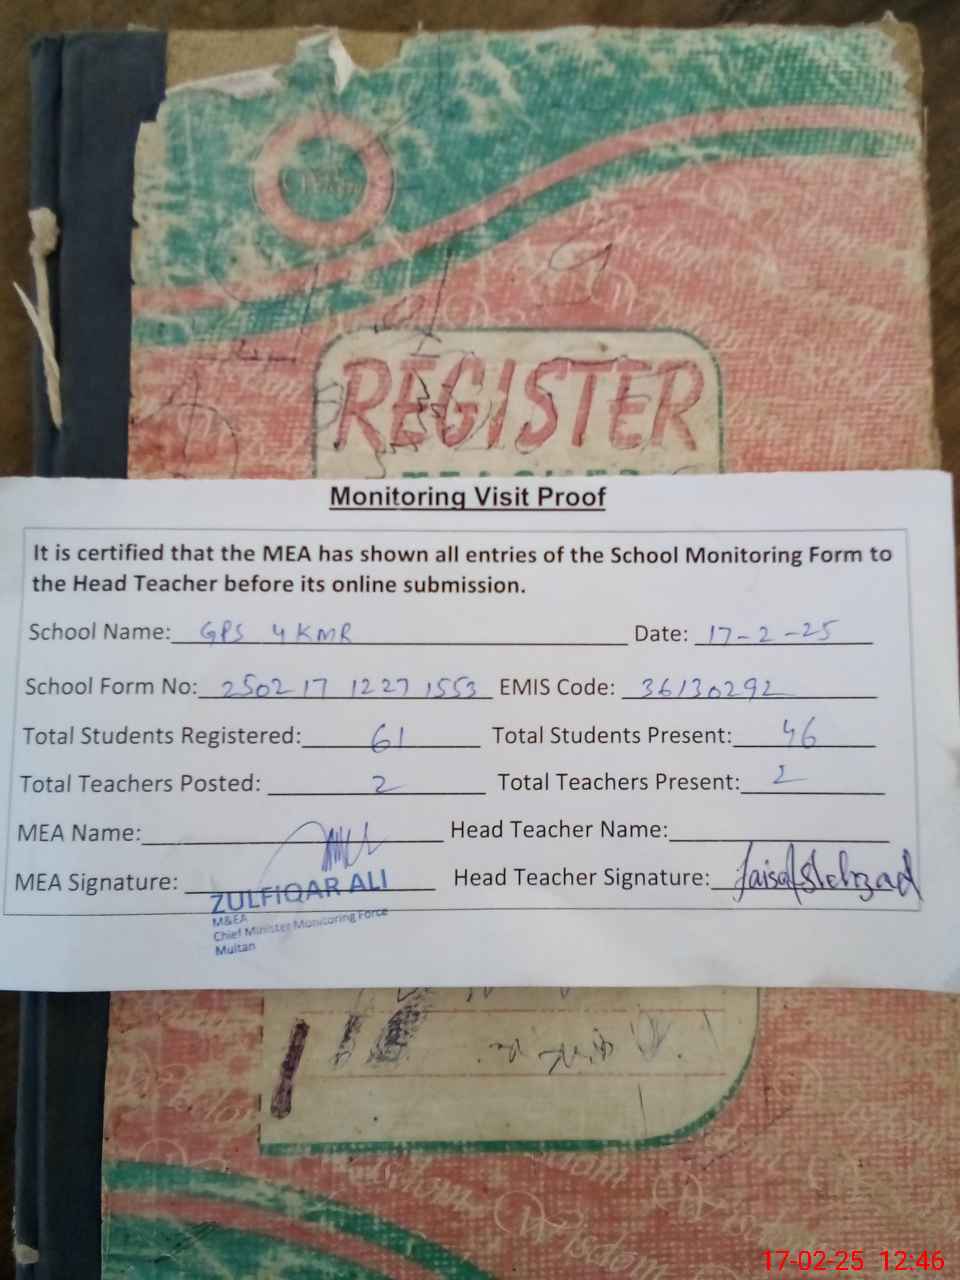 Wisdom
REGISTER
Monitoring Visit Proof
It is certified that the MEA has shown all entries of the School Monitoring Form to
the Head Teacher before its online submission.
School Name: GPS 4 KMR Date: 17-2-25
School Form No: 250217 1227 1553 EMIS Code: 36130292
Total Students Registered: 61 Total Students Present: 46
Total Teachers Posted: 2 Total Teachers Present: 2
MEA Name: Head Teacher Name:
MEA Signature: Head Teacher Signature: faisal shehzad
ZULFIQAR ALI
M&EA
Chief Minister Monitoring Force
Multan
Wisdom
17-02-25 12:46